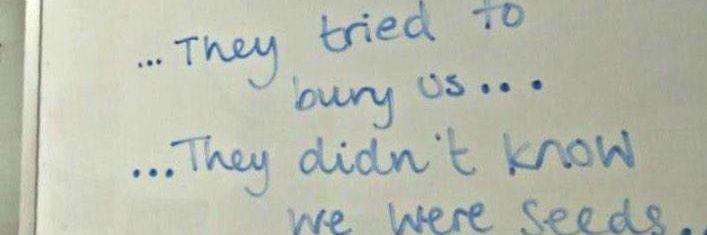 ... They tried to
bury us...
...They didn't know
we were seeds..